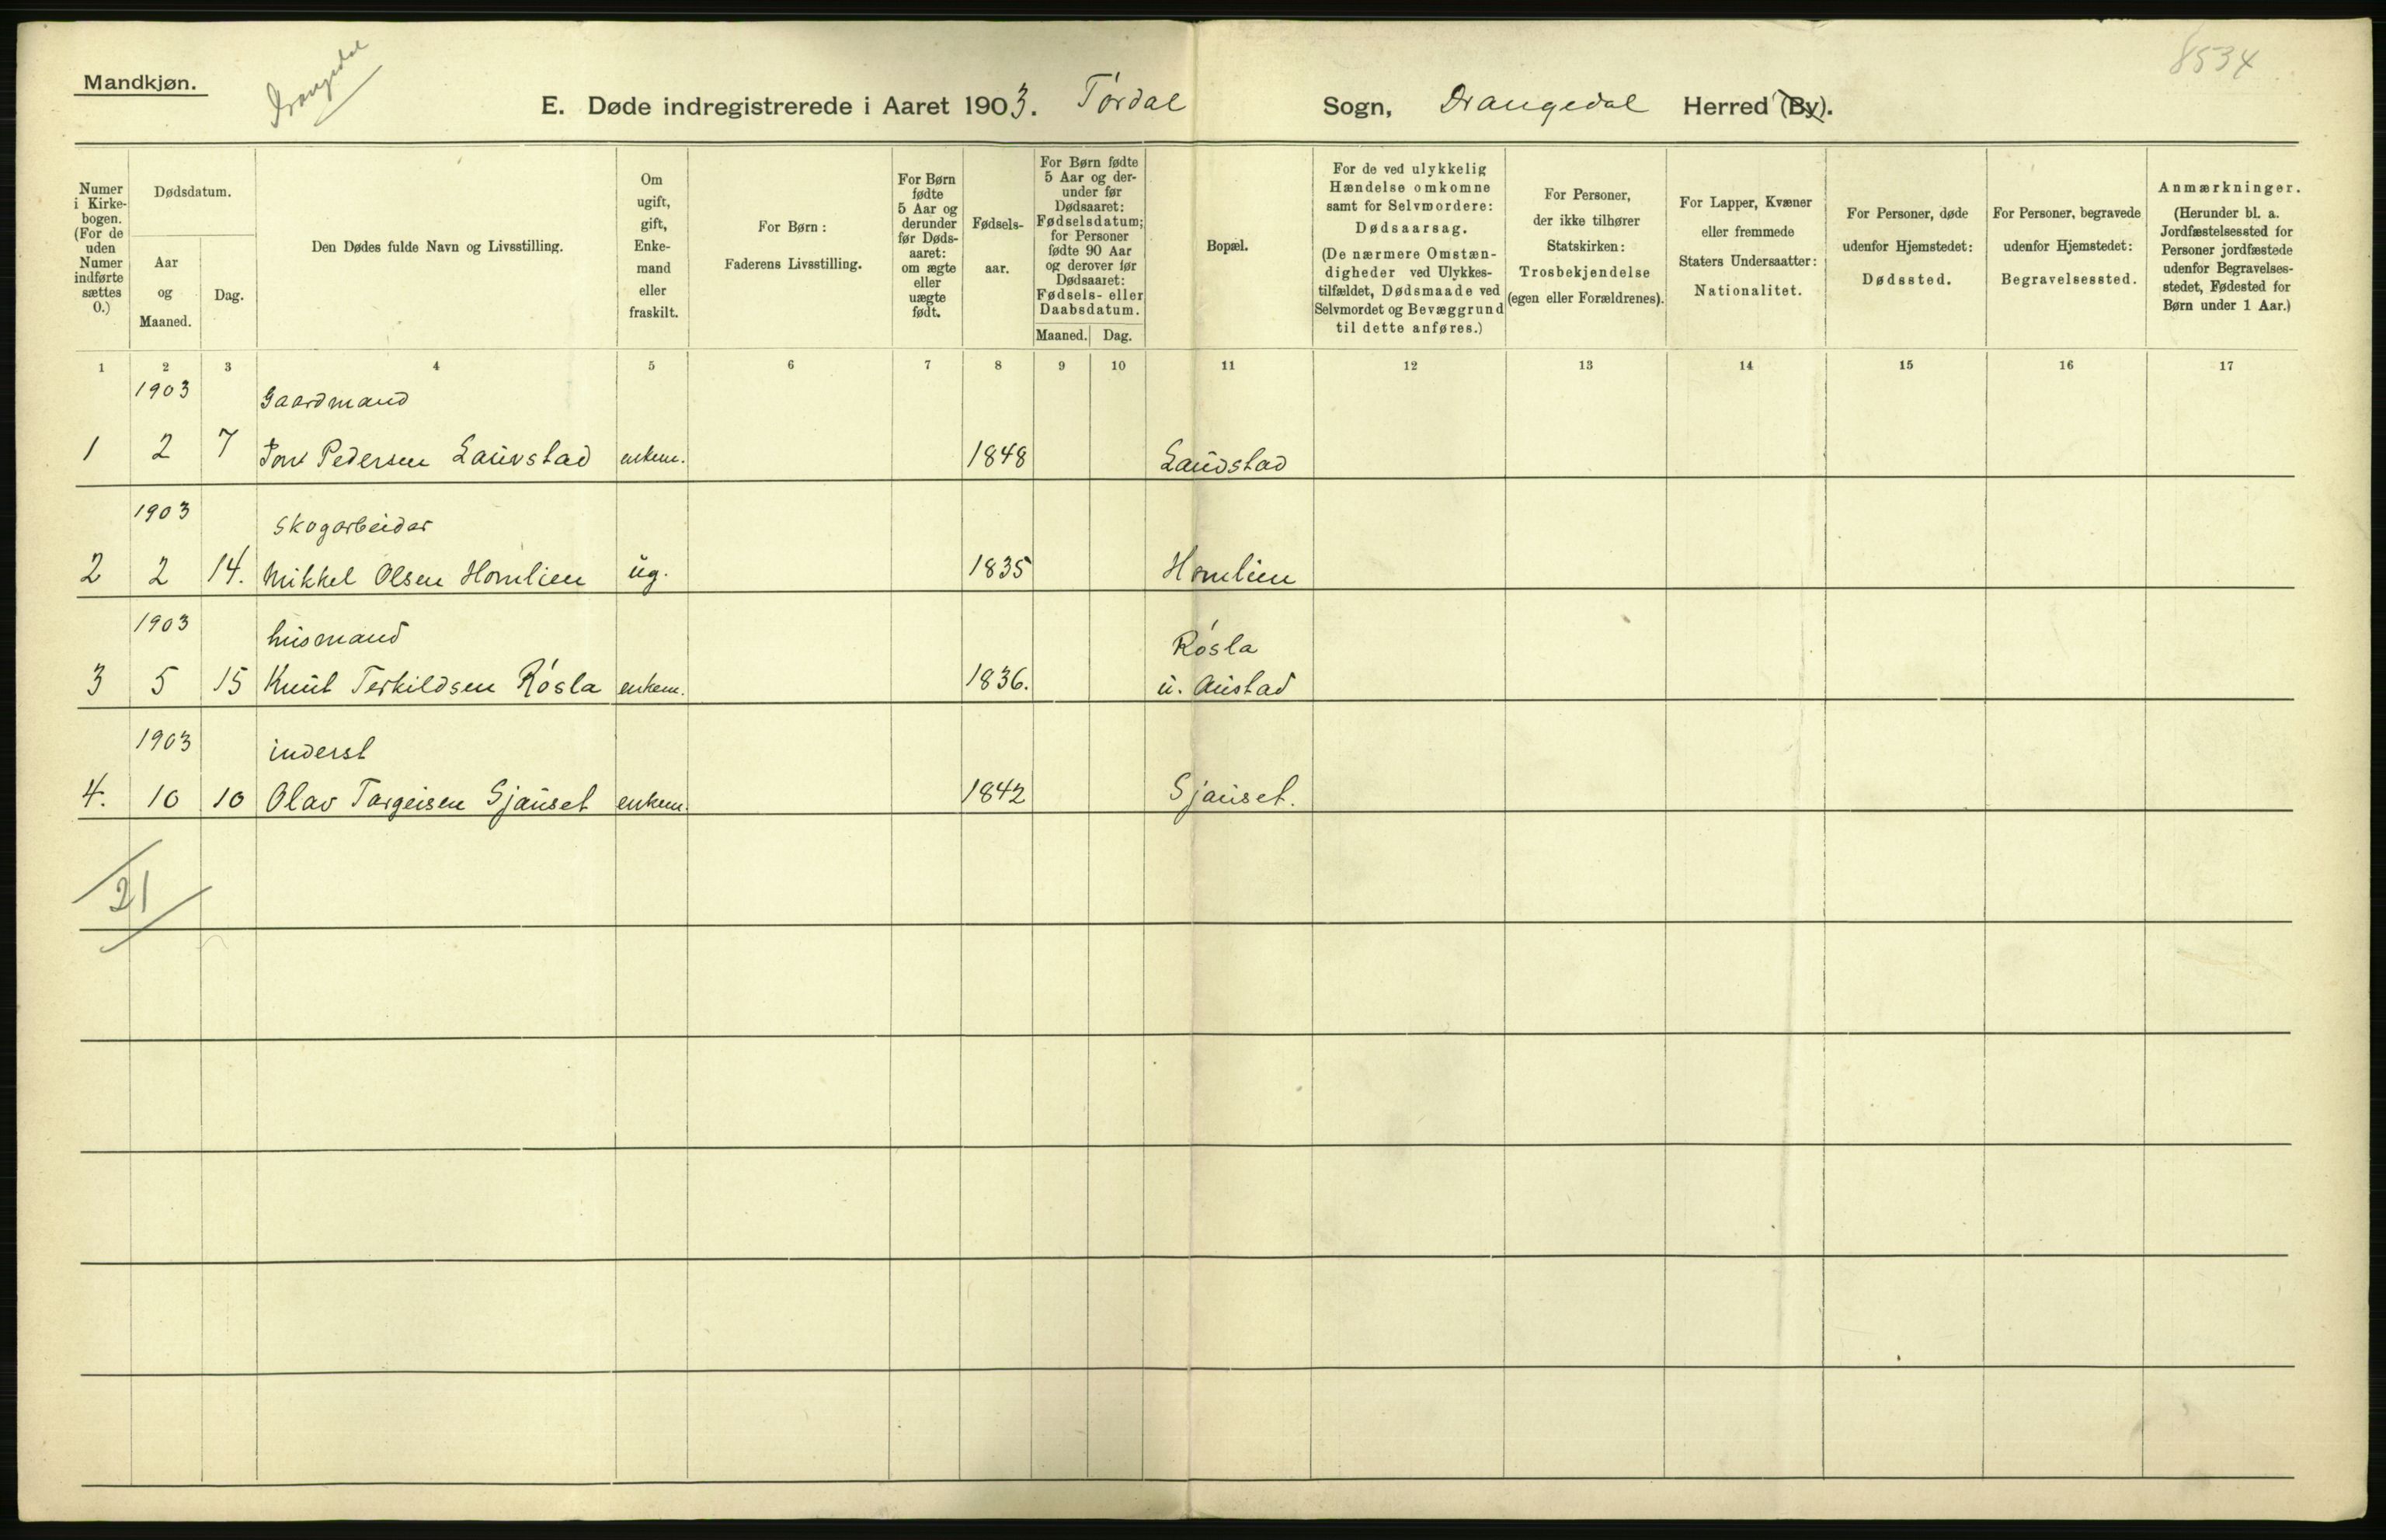 Mandkjøn.
Drangedal
8534
E. Døde indregistrerede i Aaret 1903. Tørdal Sogn, Drangedal Herred (By).
Numer i Kirkebogen. (For de uden Numer indførte sættes 0.)
Dødsdatum.
Aar og Maaned.
Dag.
Den Dødes fulde Navn og Livsstilling.
Om ugift, gift, Enkemand eller fraskilt.
For Børn: Faderens Livsstilling.
For Børn fødte 5 Aar og derunder før Dødsaaret: om ægte eller uægte født.
Fødselsaar.
For Børn fødte 5 Aar og derunder før Dødsaaret: Fødselsdatum; for Personer fødte 90 Aar og derover før Dødsaaret: Fødsels- eller Daabsdatum.
Maaned. Dag.
Bopæl.
For de ved ulykkelig Hændelse omkomne samt for Selvmordere: Dødsaarsag. (De nærmere Omstændigheder ved Ulykkestilfældet, Dødsmaade ved Selvmordet og Bevæggrund til dette anføres.)
For Personer, der ikke tilhører Statskirken: Trosbekjendelse (egen eller Forældrenes).
For Lapper, Kvæner eller fremmede Staters Undersaatter: Nationalitet.
For Personer, døde udenfor Hjemstedet: Dødssted.
For Personer, begravede udenfor Hjemstedet: Begravelsessted.
Anmærkninger. (Herunder bl. a. Jordfæstelsessted for Personer jordfæstede udenfor Begravelsesstedet, Fødested for Børn under 1 Aar.)
1 2 3 4 5 6 7 8 9 10 11 12 13 14 15 16 17
1903 Gaardmand
1 2 7 Jon Pedersen Lauvstad enkem. 1848 Laudstad
1903 Skogarbeider
2 2 14. Mikkel Olsen Homlien ug. 1835 Homlien
1903 husmand Røsla
3 5 15 Knut Terkildsen Røsla enkem. 1836. u. Austad
1903 inderst
4. 10 10 Olav Targeisen Sjauset enkem. 1842 Sjauset.
21